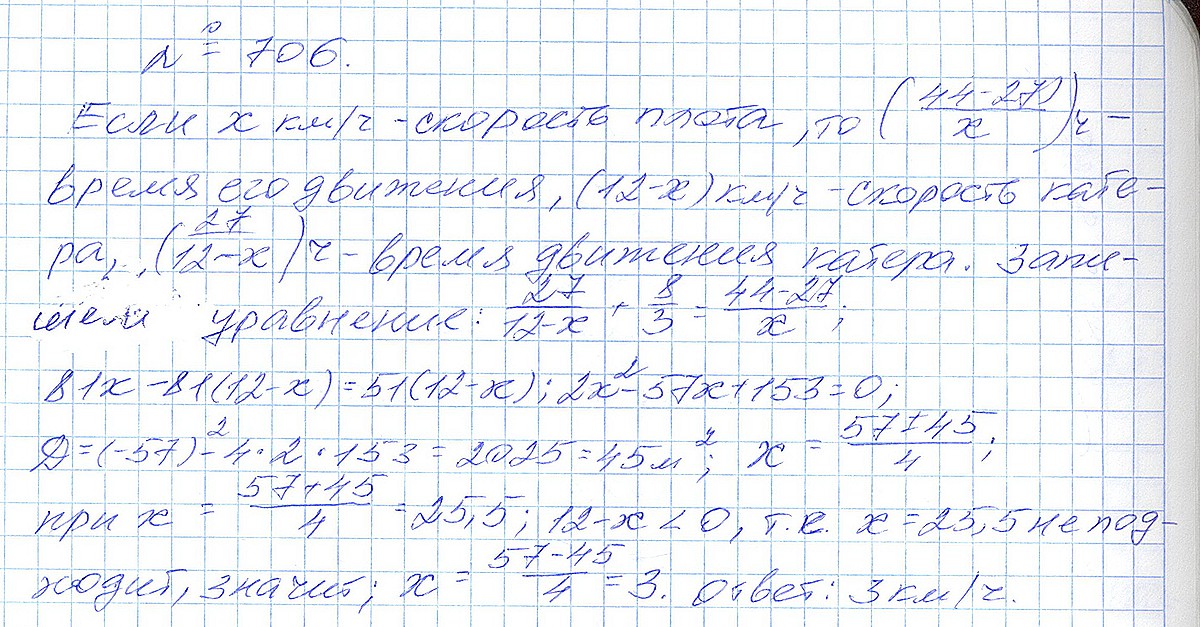 № 706.
Если x км/ч - скорость плота, то ((44-27)/x) ч -
время его движения, (12-x) км/ч - скорость кате-
ра, (27/(12-x)) ч - время движения катера. Запи-
шем уравнение: 27/(12-x) + 8/3 = (44-27)/x;
81x - 81(12-x) = 51(12-x); 2x² - 57x + 153 = 0;
D = (-57)² - 4·2·153 = 2025 = 45²; x = (57±45)/4;
при x = (57+45)/4 = 25,5; 12-x < 0, т.е. x = 25,5 не под-
ходит, значит; x = (57-45)/4 = 3. Ответ: 3 км/ч.